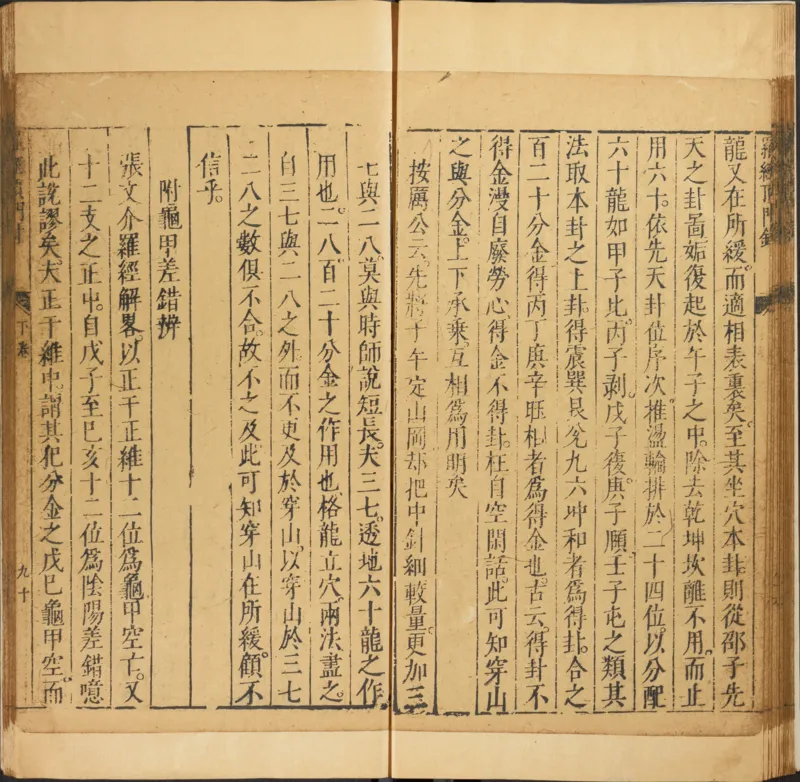 羅經頂門針
龍又在所緩而適相表裏矣至其坐穴本卦則從邵子先
天之卦啚姤復起於午子之中除去乾坤坎離不用而止
用六十依先天卦位序次推盪輪排於二十四位以分配
六十龍如甲子比丙子剥戊子復庚子頤壬子屯之類其
法取本卦之上卦得震巽艮兊九六冲和者爲得卦合之
百二十分金得丙丁庚辛旺相者爲得金也古云得卦不
得金漫自廢勞心得金不得卦枉自空閑話此可知穿山
之與分金上下承乘互相爲用明矣
按厲公云先將子午定山岡却把中針細較量更加三
七與二八莫與時師說短長夫三七透地六十龍之作
用也二八百二十分金之作用也格龍立穴兩法盡之
自三七與二八之外而不更及於穿山以穿山於三七
二八之數俱不合故不之及此可知穿山在所緩顧不
信乎
附龜甲差錯辨
張文介羅經解畧以正干正維十二位爲龜甲空亡又
十二支之正中自戊子至巳亥十二位爲陰陽差錯噫
此說謬矣夫正干維中謂其犯分金之戊巳龜甲空而
下卷
九十